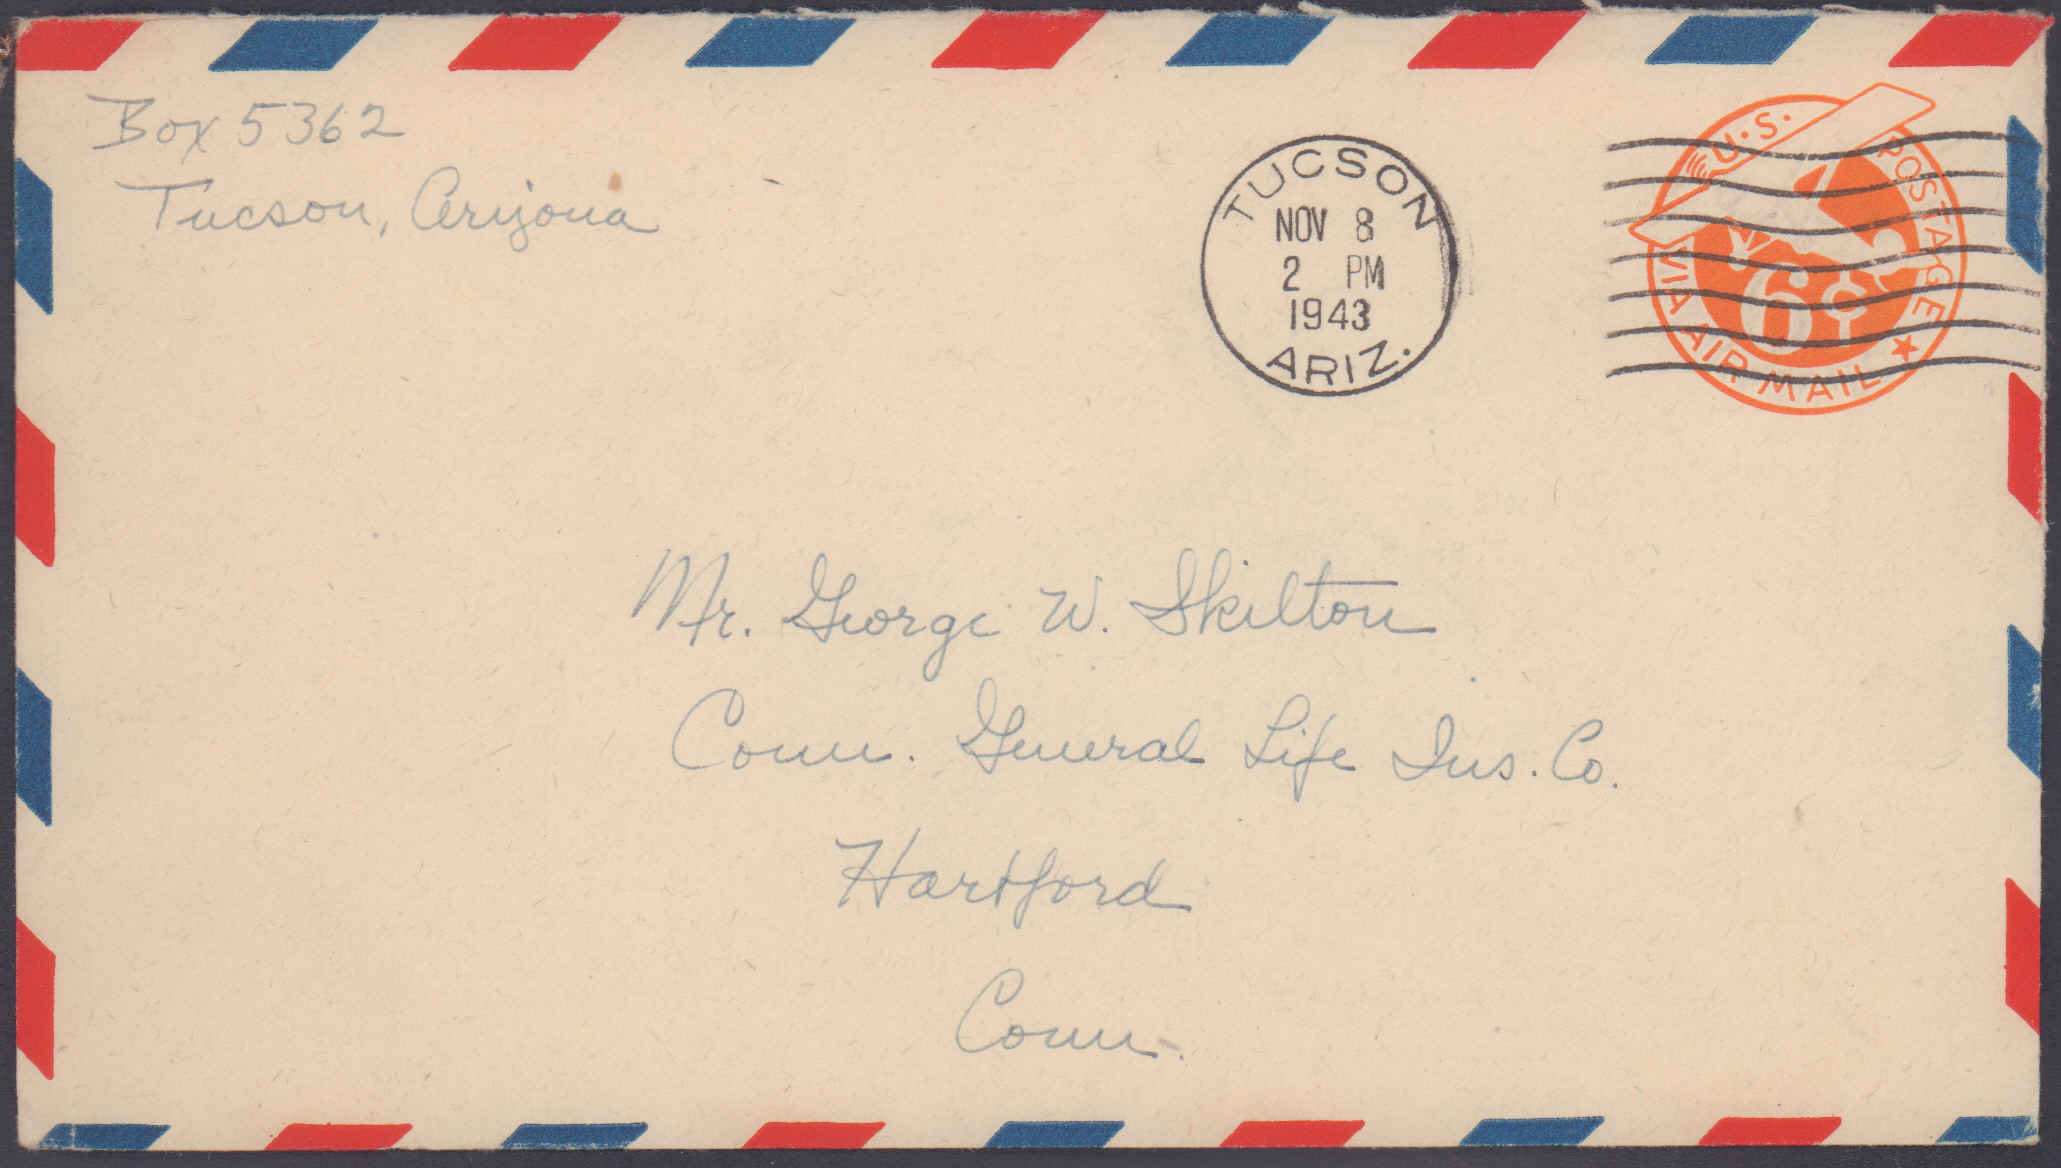 Box 5362
Tucson, Arizona
TUCSON
NOV 8
2 PM
1943
ARIZ.
U.S. POSTAGE
6¢
VIA AIR MAIL
Mr. George W. Skilton
Conn. General Life Ins. Co.
Hartford
Conn.